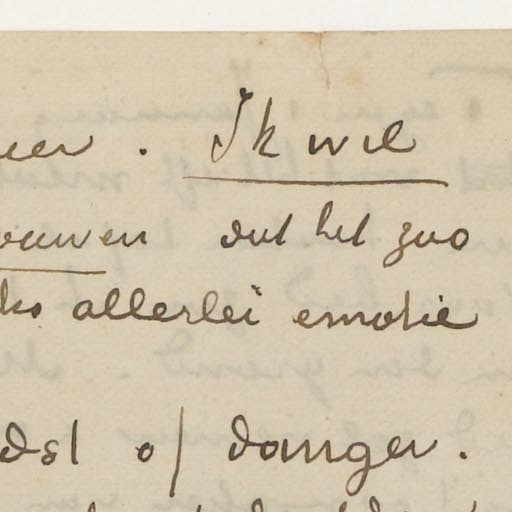 . Ik wil
ouwen dat het zoo
ks allerlei emotie
dst of danger.